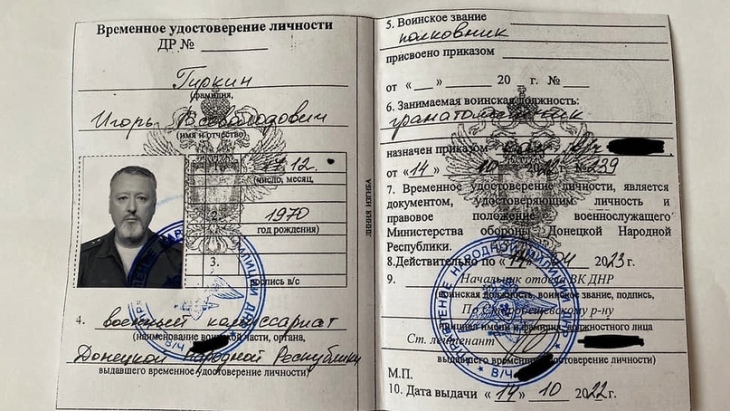 Временное удостоверение личности
ДР №
Гиркин
(фамилия,
Игорь Всеволодович
(имя и отчество)
1. 17.12.
(число, месяц,
2. 1970
год рождения)
3.
подпись в/с
4. военный комиссариат
(наименование воинской части, органа,
Донецкой Народной Республики
выдавшего временное удостоверение личности)
В/Ч
ЛИНИЯ ИЗГИБА
5. Воинское звание
полковник
присвоено приказом
от «__» 20 г. №
6. Занимаемая воинская должность:
назначен приказом
от «14» 10 2022 г. № 239
7. Временное удостоверение личности, является
документом, удостоверяющим личность и
правовое положение военнослужащего
Министерства обороны Донецкой Народной
Республики.
8.Действительно по «14» 04 2023 г.
9. Начальник отдела ВК ДНР
(воинская должность, воинское звание, подпись,
По Старобешевскому р-ну
инициал имени и фамилия должностного лица
Ст. лейтенант
выдавшего временное удостоверение личности)
М.П.
В/Ч
10. Дата выдачи «14» 10 2022 г.